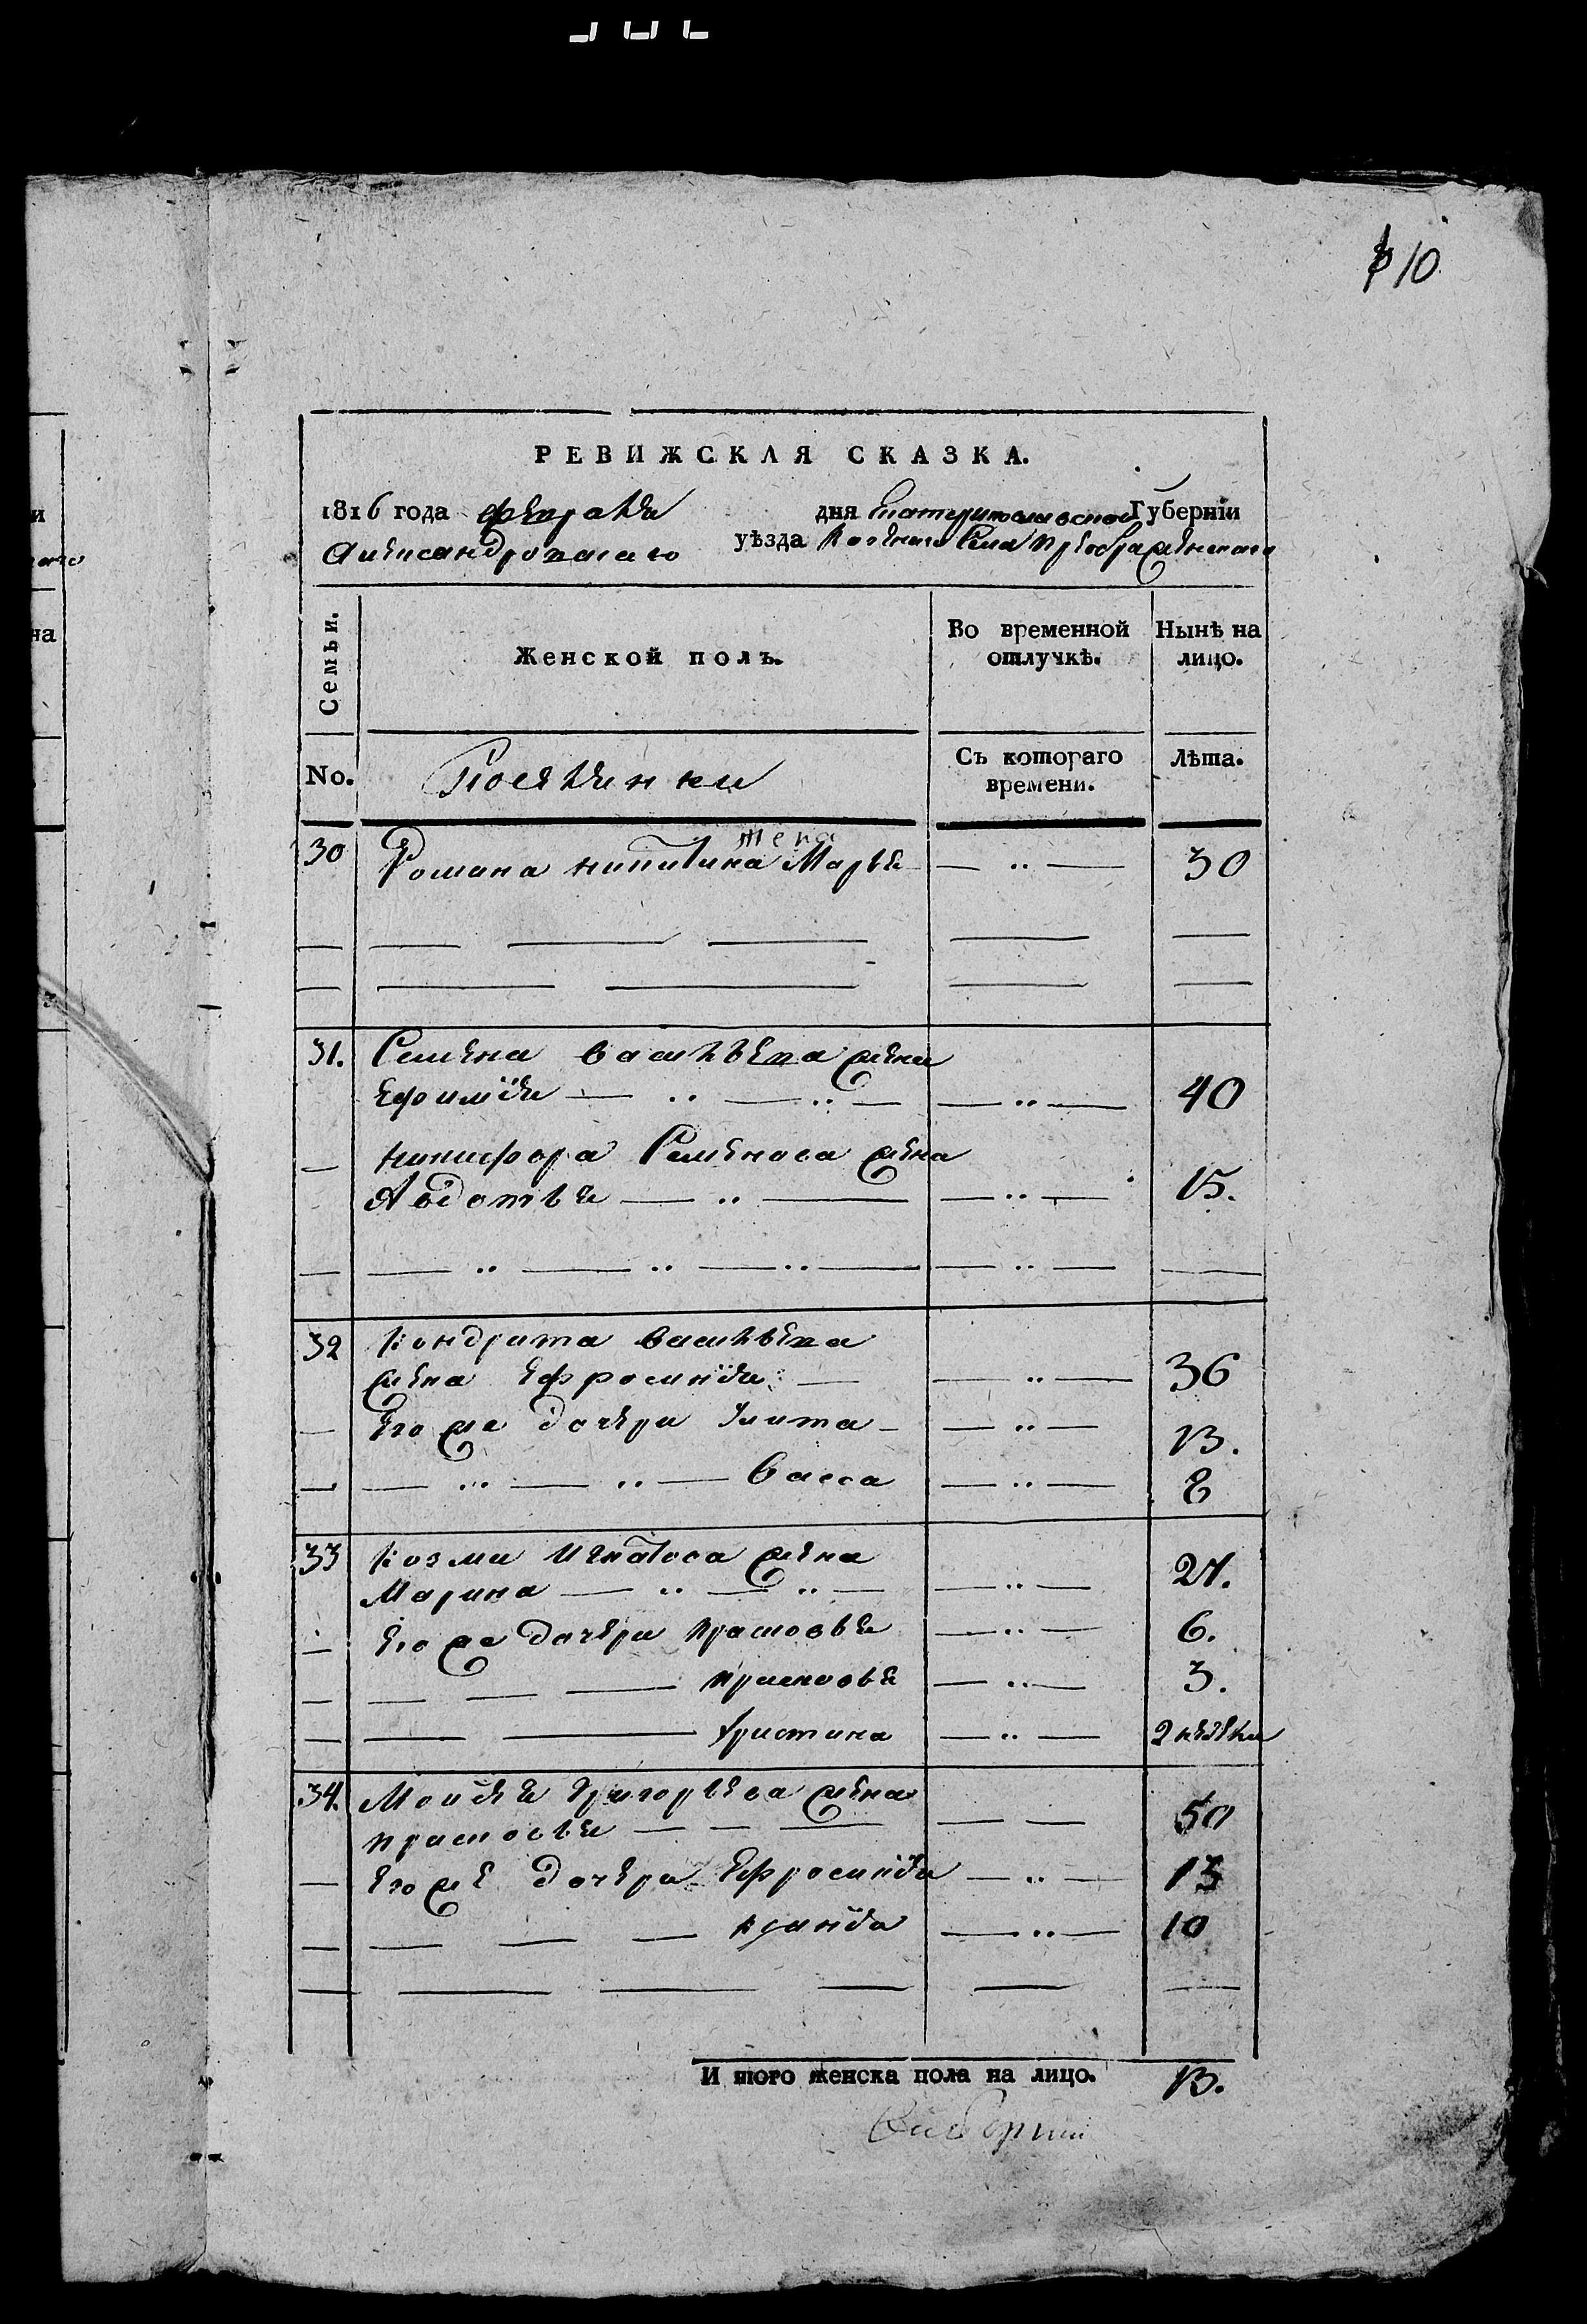 10
РЕВИЖСКАЯ СКАЗКА.
1816 года февраля дня Екатеринославской Губернїи
Александровскаго уѣзда Казенаго Села Преображенскаго
Семьи. Женской полъ. Во временной отлучкѣ. Нынѣ на лицо.
No. Поселянки Съ котораго времени. Лѣта.
жена
30 Романа никитина Марья 30
31. Семена васильева жена
Ефимія 40
никифора Семенова жена
Авдотья 15.
32 Кондрата васильева
жена Ефросинія 36
Его же дочери Улита 13.
васса 8
33 Козми Игнатова жена
Марина 27.
Его же дочери прасковья 6.
прасковья 3.
христина 2 недели
34. Мойсея Григорьева жена
прасковья 50
Его же дочери Ефросинія 13
10
И того женска пола на лицо. 13.